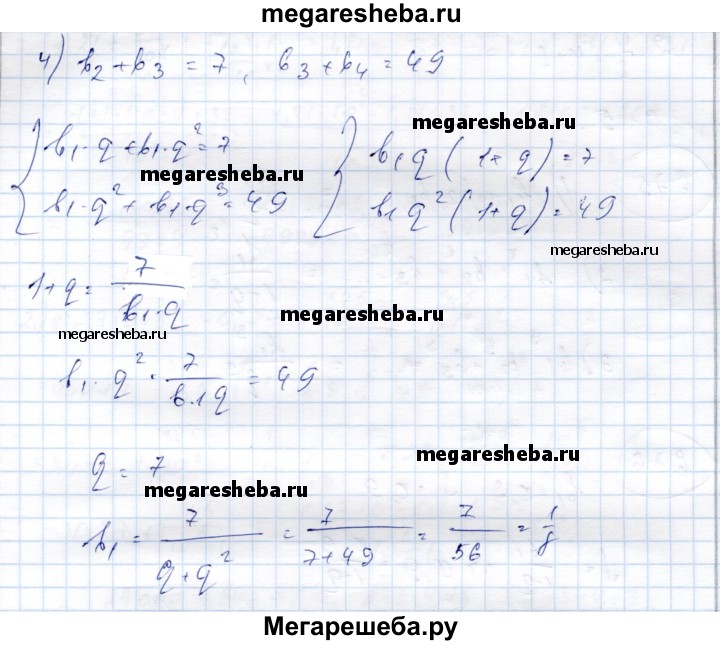 megaresheba.ru
4) b₂ + b₃ = 7, b₃ + b₄ = 49
megaresheba.ru
{ b₁·q + b₁·q² = 7 { b₁q (1+q) = 7
megaresheba.ru
b₁·q² + b₁·q³ = 49 b₁q² (1+q) = 49
megaresheba.ru
1+q = 7/(b₁·q)
megaresheba.ru
megaresheba.ru
b₁·q² · 7/(b₁q) = 49
megaresheba.ru
q = 7
megaresheba.ru
b₁ = 7/(q+q²) = 7/(7+49) = 7/56 = 1/8
Мегарешеба.ру